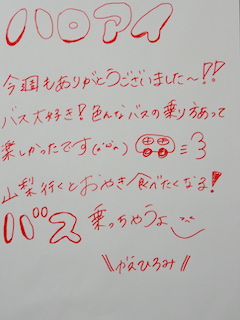 ハロアイ
今週もありがとうございました〜!!
バス大好き!色んなバスの乗り方あって
楽しかったです(^o^)
山梨行くとおやき食べたくなる!
バス乗っちゃうよ
\\かえひろみ//